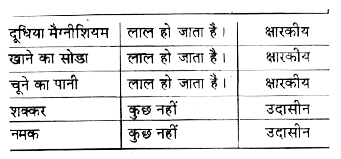 दूधिया मैग्नीशियम लाल हो जाता है। क्षारकीय
खाने का सोडा लाल हो जाता है। क्षारकीय
चूने का पानी लाल हो जाता है। क्षारकीय
शक्कर कुछ नहीं उदासीन
नमक कुछ नहीं उदासीन